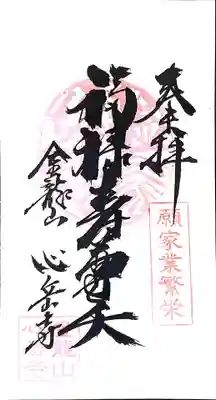 奉拝
願家業繁栄
福禄寿尊天
金龍山 心岳寺